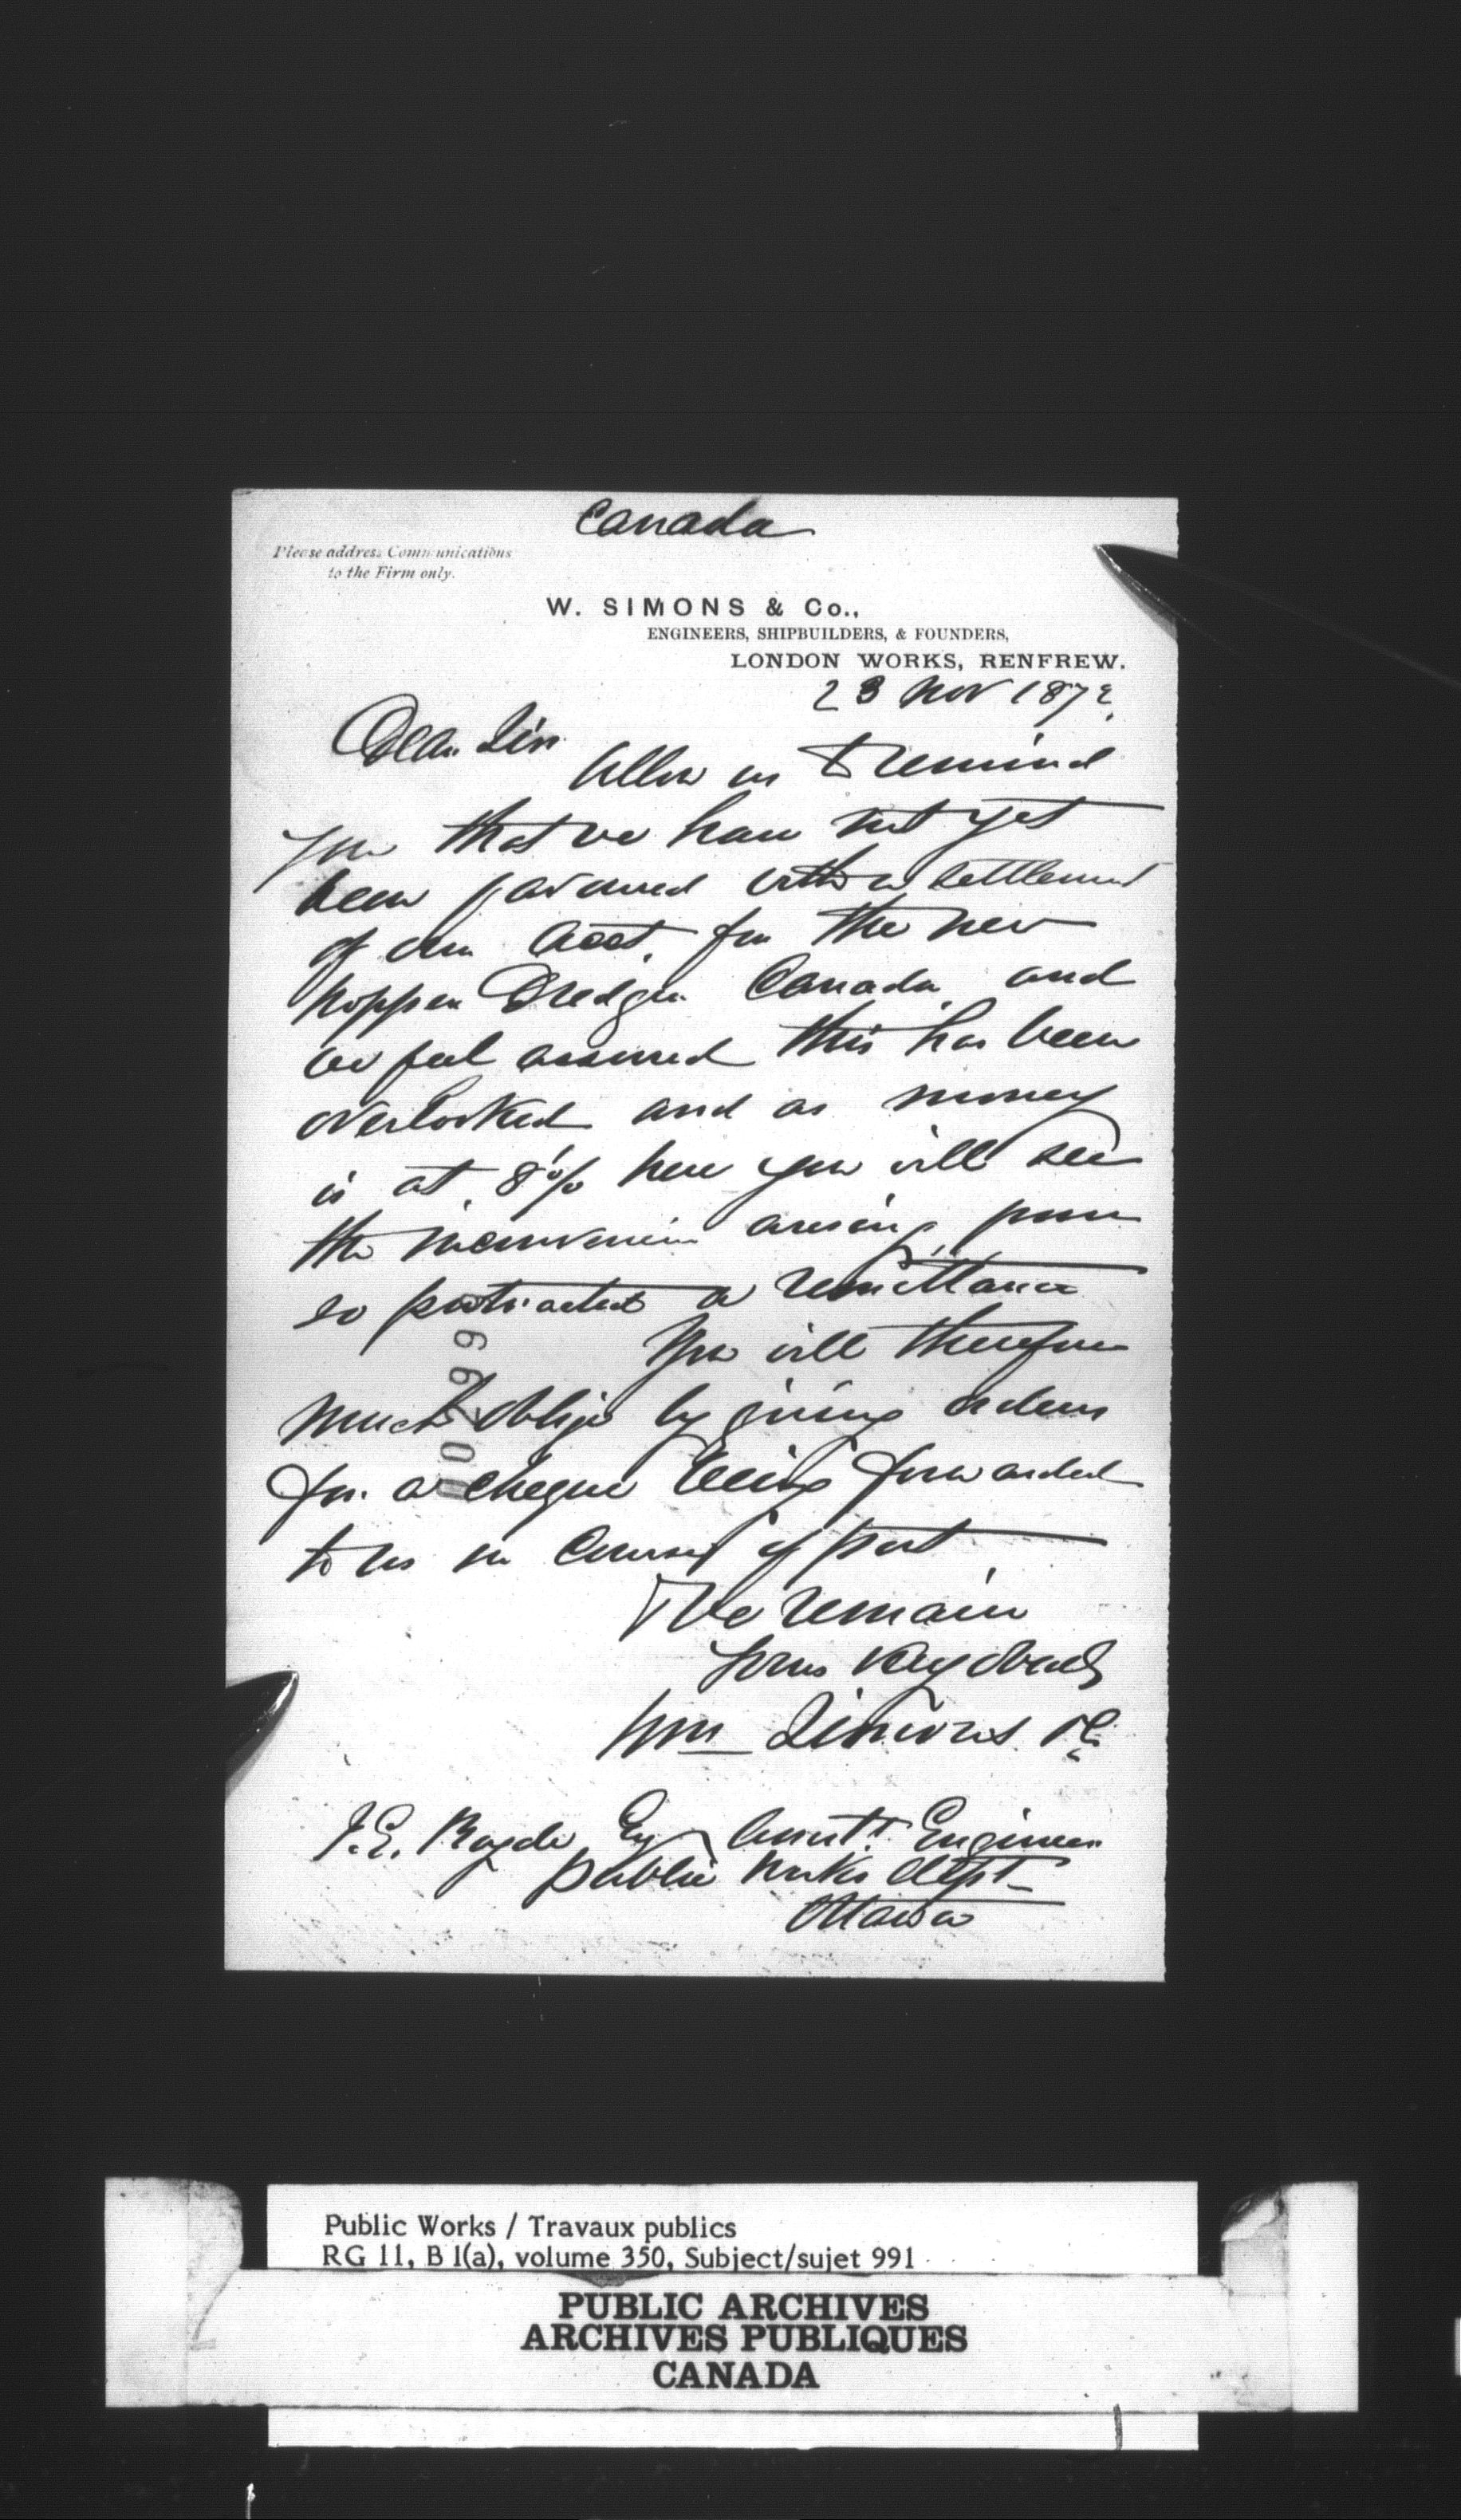 Canada
Please address Communications
to the Firm only.
W. SIMONS & Co.,
ENGINEERS, SHIPBUILDERS, & FOUNDERS,
LONDON WORKS, RENFREW.
23 Nov 1872
Dear Sir
Allow us to remind
you that we have not yet
been favoured with a settlement
of our Acct. for the new
Hopper Dredger Canada and
we feel assured this has been
overlooked and as money
is at 8% here you will see
the inconvenience arising from
so protracted a remittance
You will therefore
much oblige by giving orders
for a cheque being forwarded
to us in course of post
We remain
Yours very
Wm Simons & Co
Esq Engineer
Public Works Dept
Ottawa
Public Works / Travaux publics
RG 11, B 1(a), volume 350, Subject/sujet 991
PUBLIC ARCHIVES
ARCHIVES PUBLIQUES
CANADA